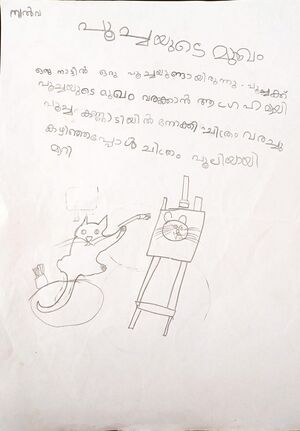 സ്വൽവ
പൂച്ചയുടെ മുഖം
ഒരു നാട്ടിൽ ഒരു പൂച്ചയുണ്ടായിരുന്നു. പൂച്ചക്ക്
പൂച്ചയുടെ മുഖം വരക്കാൻ ആഗ്രഹമായി
പൂച്ച കണ്ണാടിയിൽ നോക്കി ചിത്രം വരച്ചു
കഴിഞ്ഞപ്പോൾ ചിത്രം പുലിയായി
മാറി